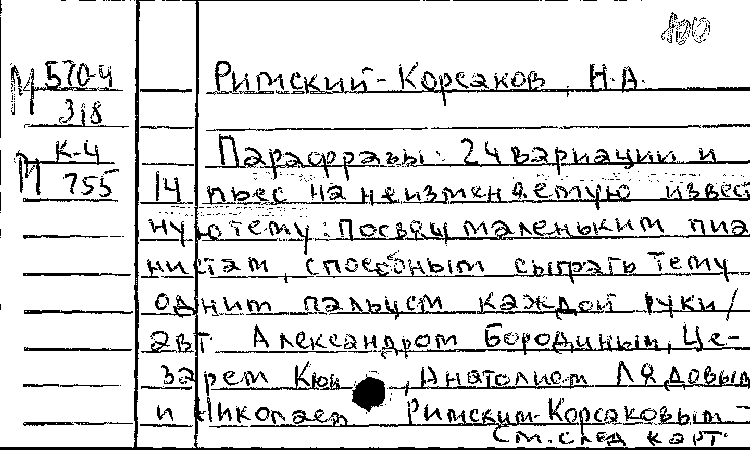 100
М 570-4
318
Римский-Корсаков, Н.А.
К-4
М 755
Парафразы: 24 вариации и
14 пьес на неизменяемую извест
ную тему: посвящ маленьким пиа
нистам, способным сыграть тему
одним пальцем каждой руки/
авт Александром Бородиным, Це-
зарем Кюи, Анатолием Лядовым
и Николаем Римским-Корсаковым-
См. след карт.